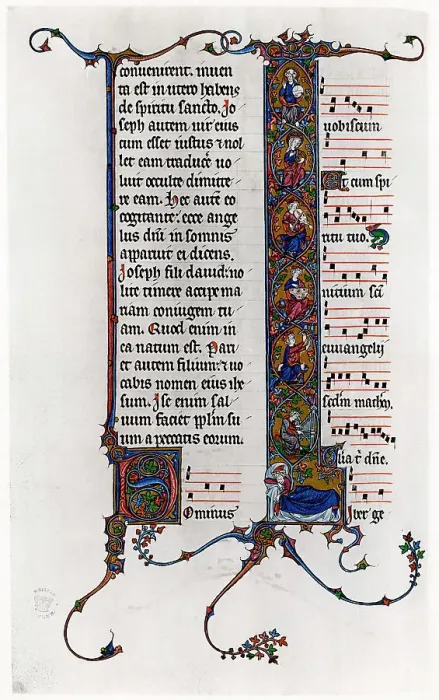 conuenirent. inuen
ta est in utero habens
de spiritu sancto. Jo
seph autem uir eius
cum esset iustus ⁊ nol
let eam traduce uo
luit occulte dimitte
re eam. Hec aute eo
cogitante. ecce ange
lus dni in somnis
apparuit ei dicens.
Joseph fili dauid. no
lite timere accipe ma
riam coniugem tu
am. Quod enim in
ea natum est. Pari
et autem filium. ⁊ uo
cabis nomen eius ihe
sum. Ise enim sal
uum faciet pplm su
um a peccatis eorum.
Dominus
uobiscum
Et cum spi
ritu tuo. S
nitium sci
euuangelij
scdm mathm.
Glia t dne.
Liber ge